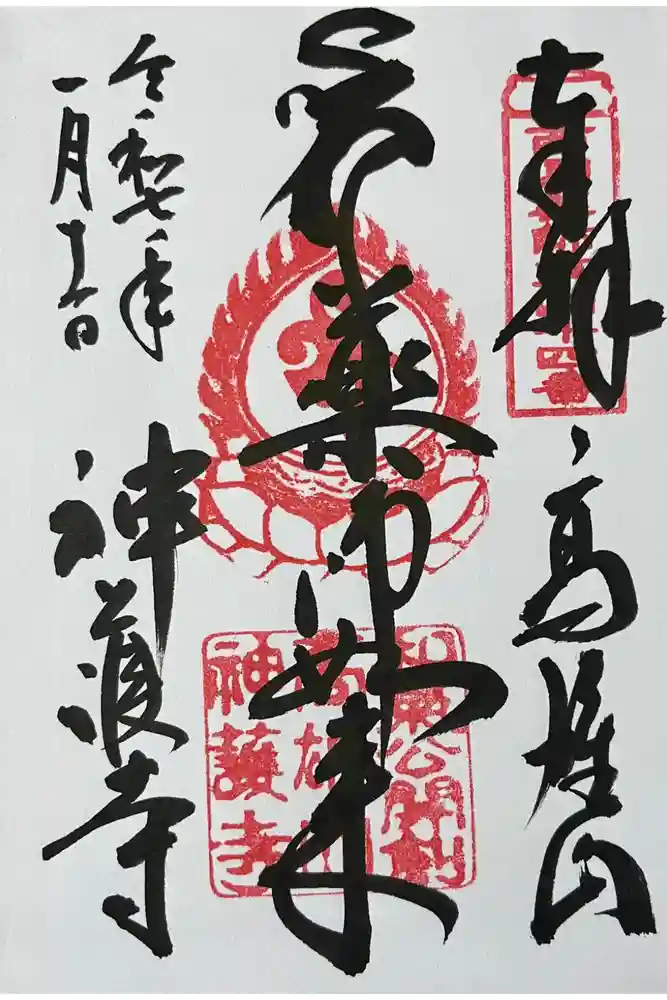 奉拝
高雄山
薬師如来
令和七年
一月
神護寺
和氣公開創
高雄山
神護寺